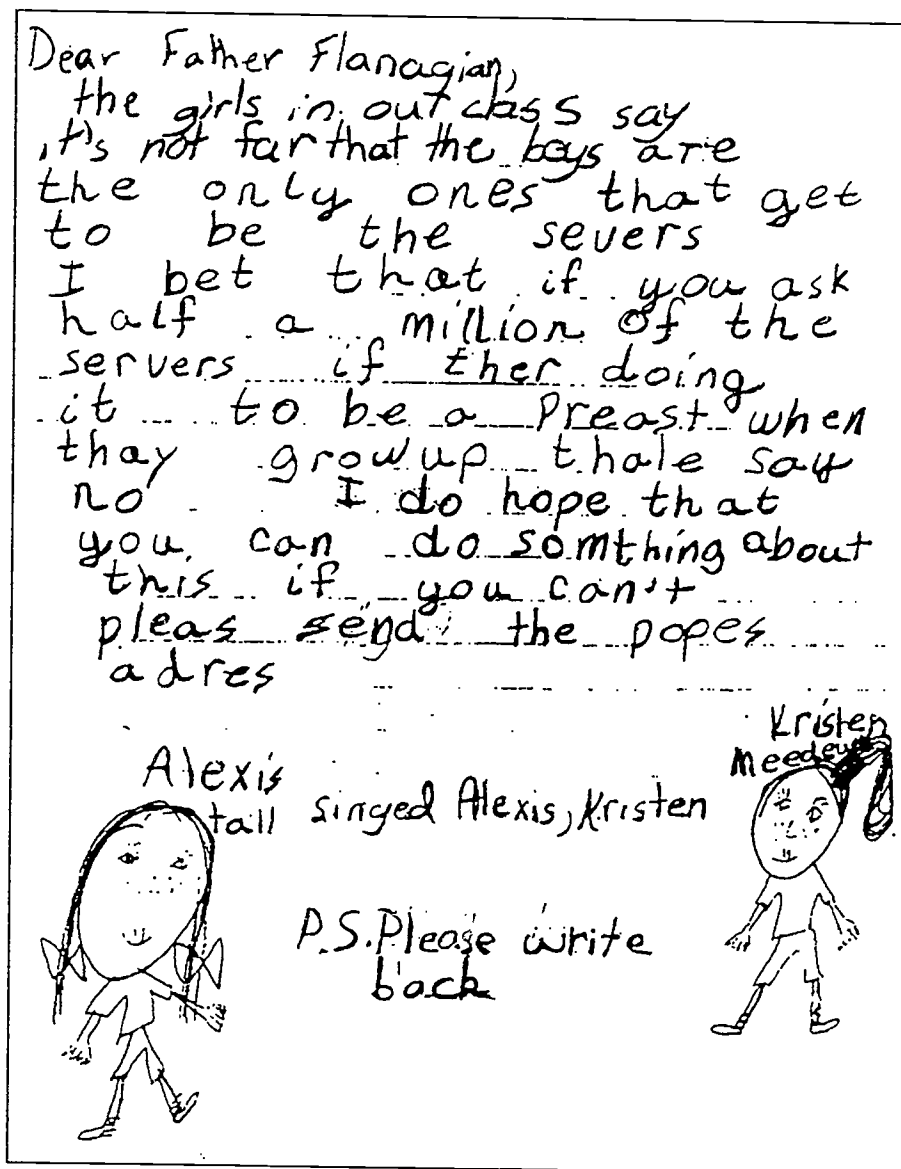 Dear Father Flanagian,
the girls in out class say
it's not far that the boys are
the only ones that get
to be the severs
I bet that if you ask
half a million of the
servers if ther doing
it to be a Preast when
thay grow up thale say
no I do hope that
you can do somthing about
this if you can't
pleas send the popes
adres
Kristen
Alexis
tall singed Alexis, Kristen
P.S. Please write
back